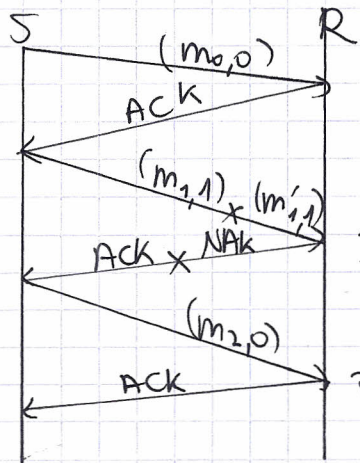 S R
(m₀,0)
ACK
(m₁,1) x (m₁',1)
ACK x NAK
(m₂,0)
ACK